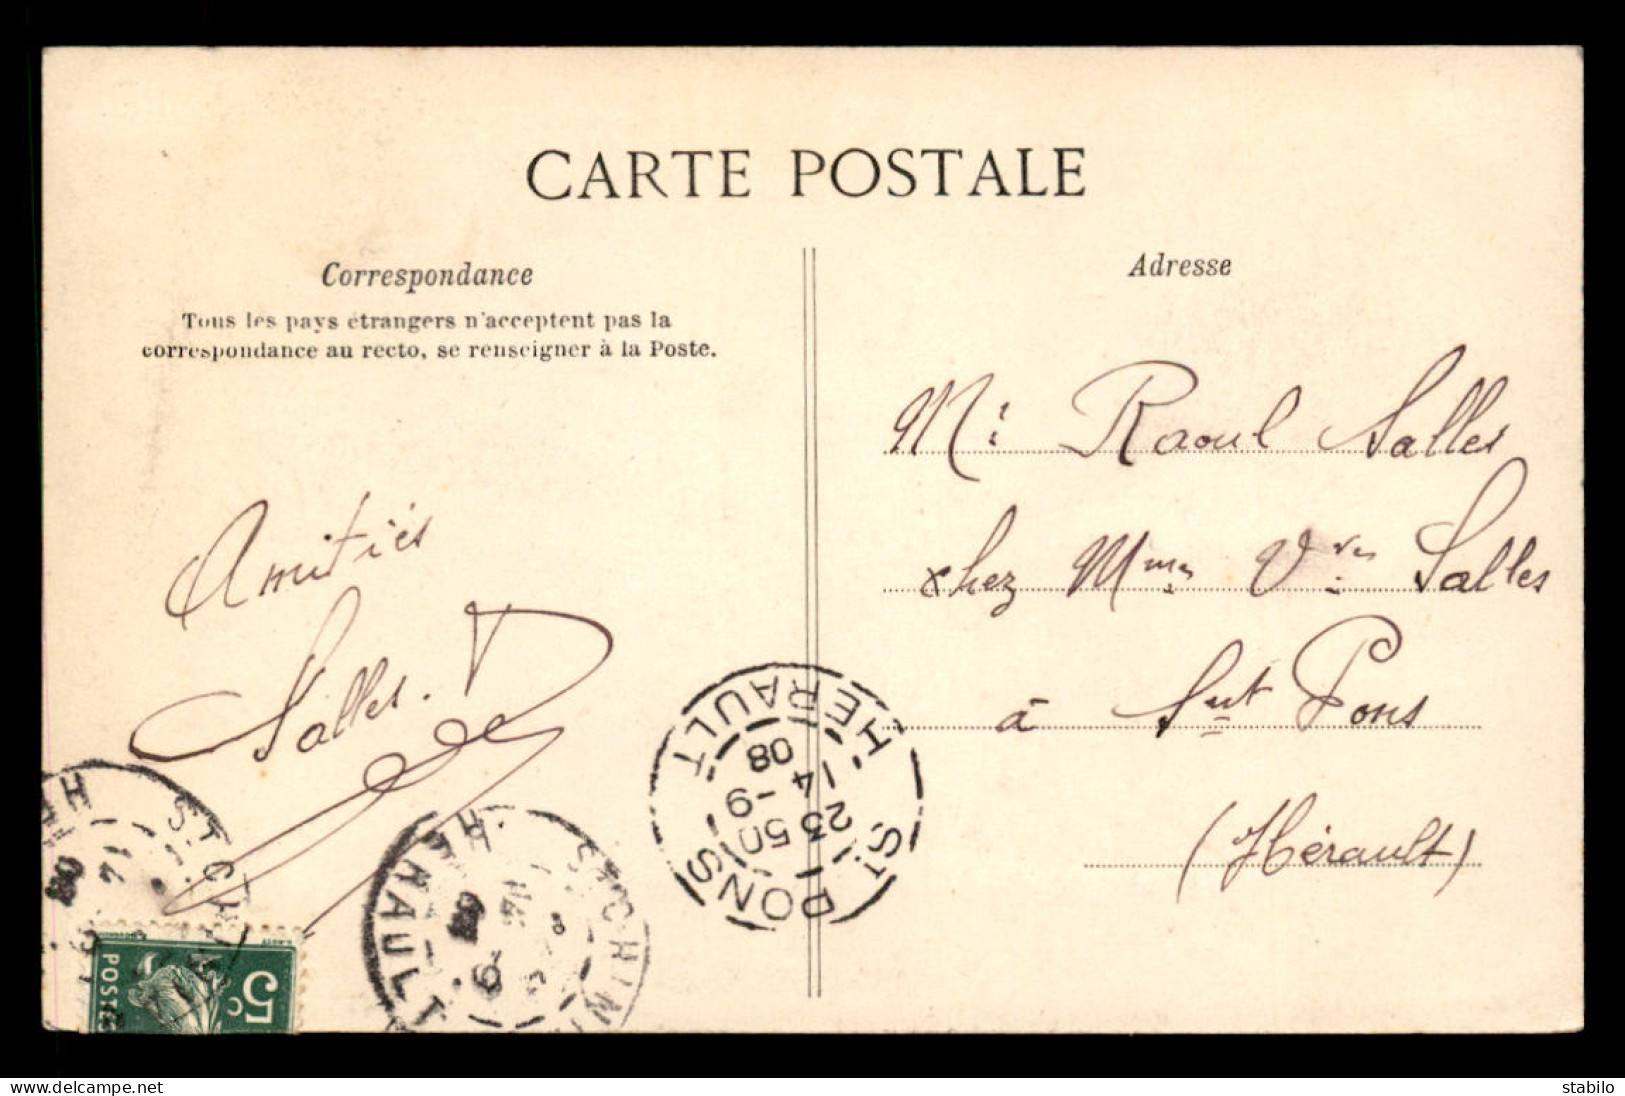 CARTE POSTALE
Correspondance
Tous les pays étrangers n'acceptent pas la
correspondance au recto, se renseigner à la Poste.
Amitiés
Salles. D
Adresse
Mr Raoul Salles
chez Mme Vve Salles
à Snt Pons
(Hérault)
ST PONS HERAULT
23 50
14 -9
08
ST CHINIAN
HERAULT
5c
POSTES
delcampe.net
stabilo